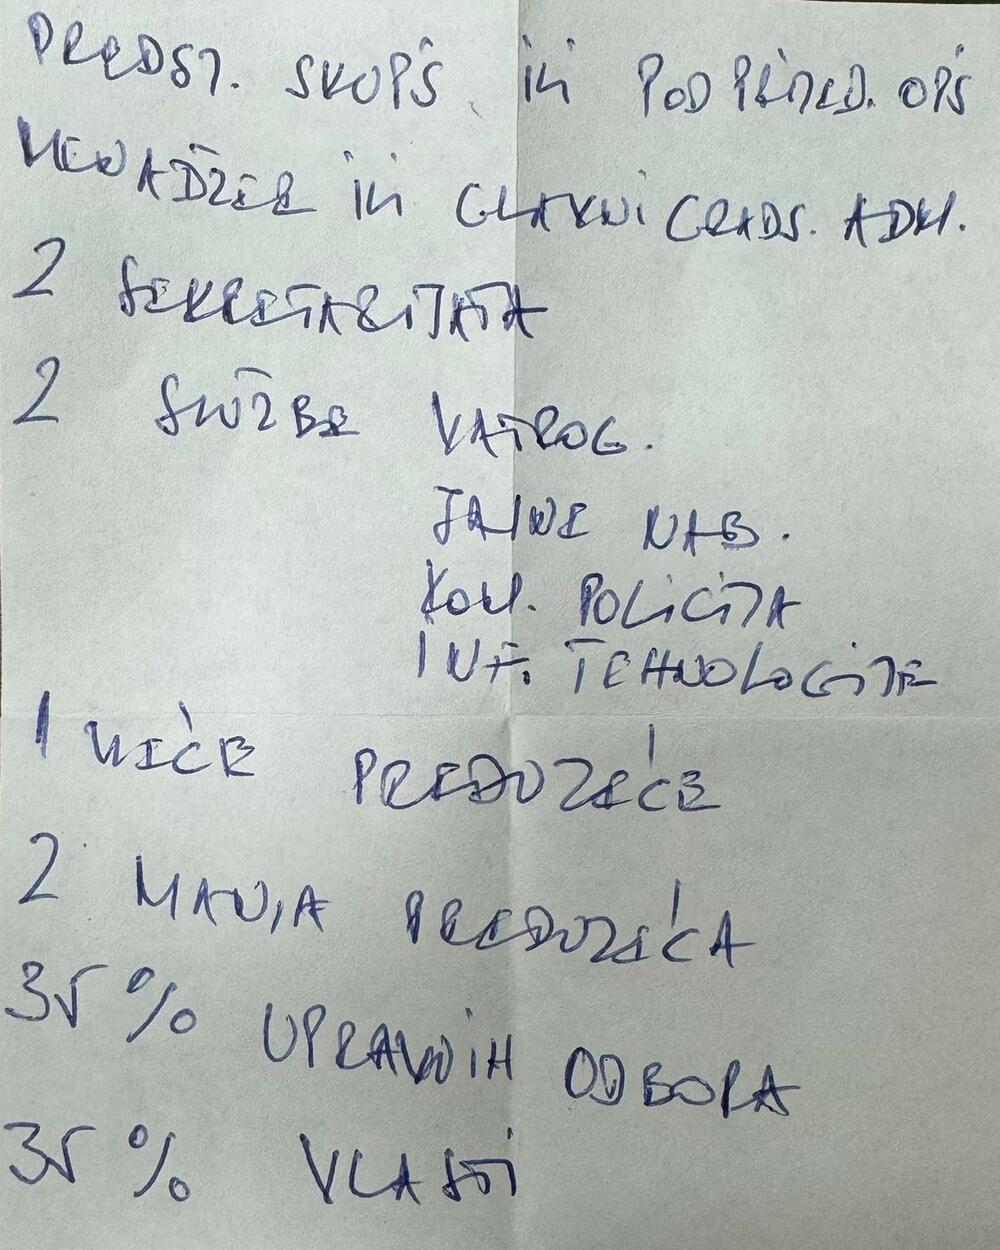 PREDSJ. SKUPŠ. ili PODPREDSJED. OPŠ
MENADŽER ili GLAVNI GRADS. ADM.
2 SEKRETARIJATA
2 SLUŽBE VATROG.
JAVNE NAB.
KOM. POLICIJA
INF. TEHNOLOGIJE
1 VEĆE PREDUZEĆE
2 MANJA PREDUZEĆA
35 % UPRAVNIH ODBORA
35 % VLASTI